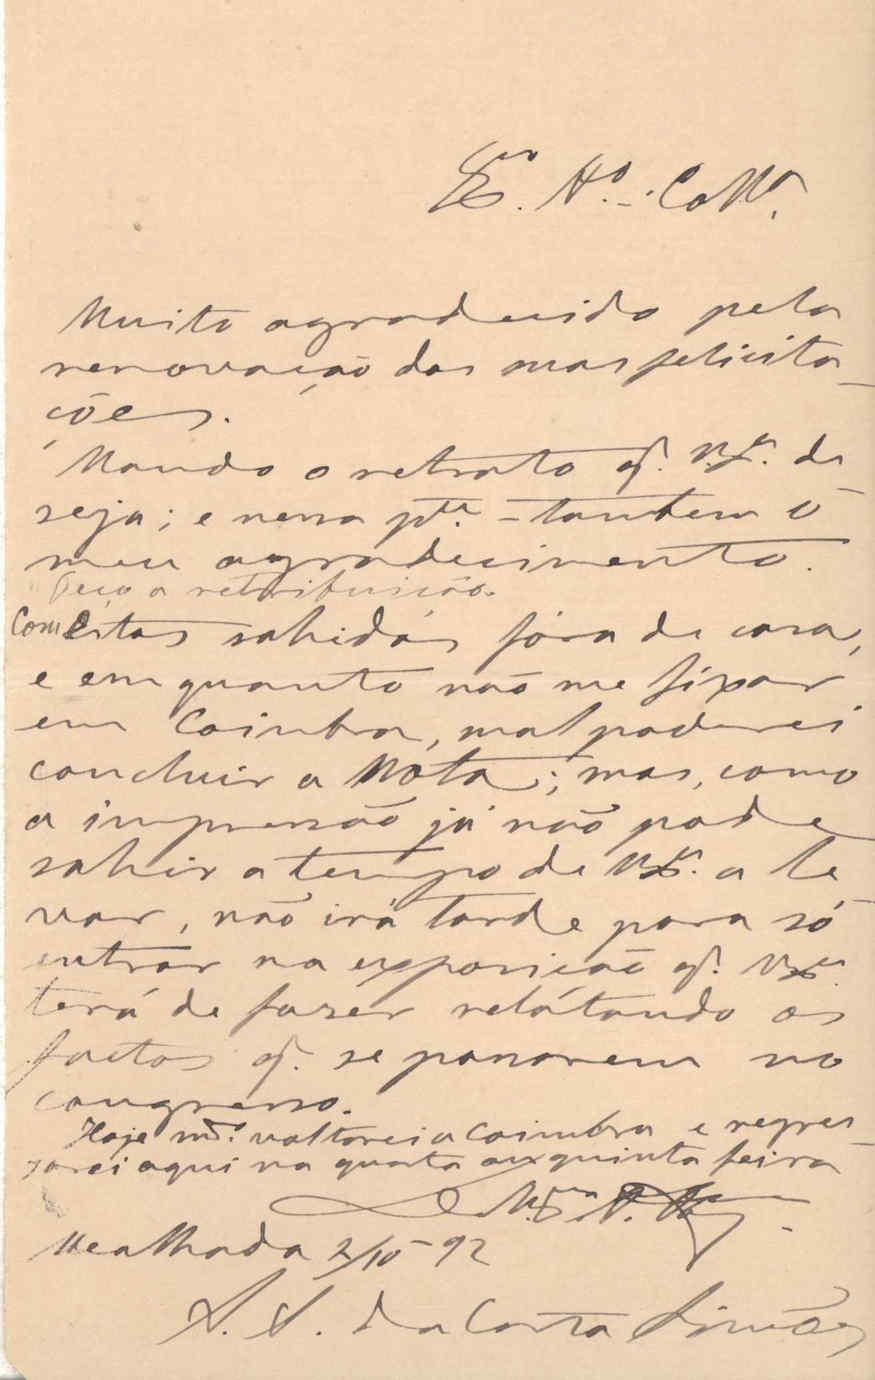 Ex.mo Am.o e Coll.a
Muito agradecido pela
renovação das suas felicita-
ções.
Mando o retrato q. V. Ex.a de-
seja; e nessa p.te tambem o
meu agradecimento.
Peço a retribuição.
Com Estas sahidas fóra de casa,
e em quanto não me fixar
em Coimbra, mal poderei
concluir a Nota; mas, como
a impressão já não pode
sahir a tempo de V. Ex.a a le-
var, não irá tarde para só
entrar na exposição q. V. Ex.a
terá de fazer relatando os
factos q. se passarem no
congresso.
Hoje m.mo voltarei a Coimbra e regres-
sarei aqui na quarta ou quinta feira
De V. Ex.a
Mealhada 2/10-92
A. A. da Costa Simões